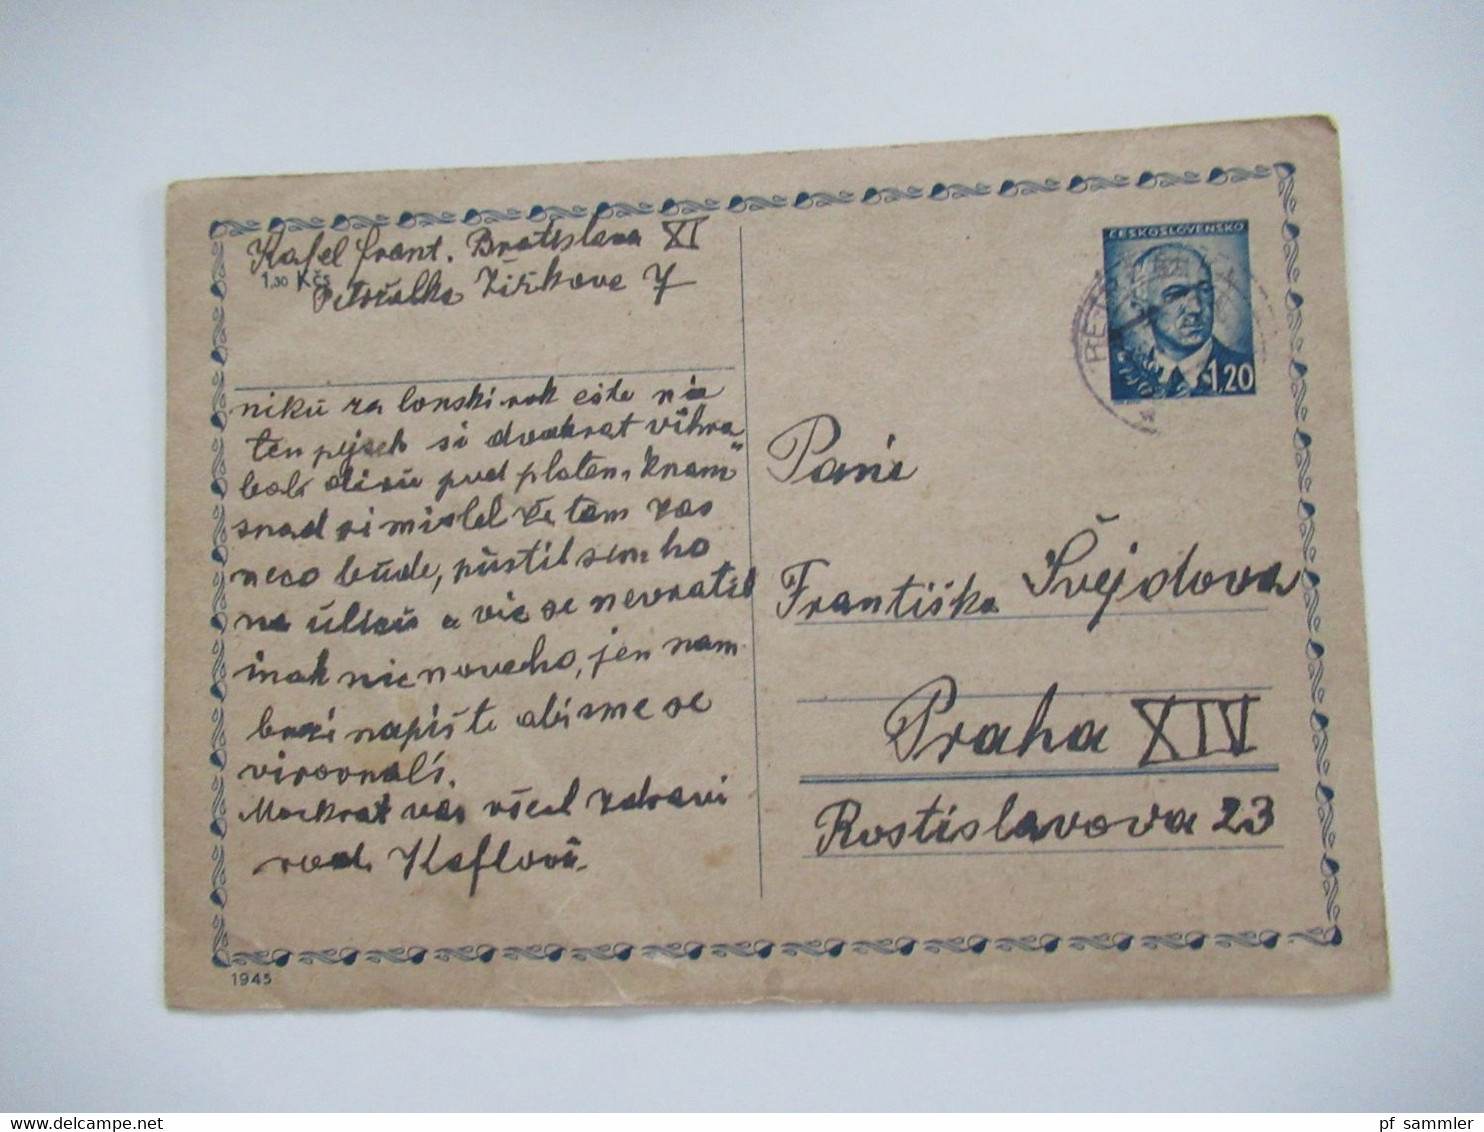 Kafel Frant. Bratislava XI
1,30 Kčs
Petržalka Žižkova 7
niku za lonski rok ešte nie
ten pejsek si dvakrat
pod platen,
snad si mislel že tam zas
neco bude, pustil sem ho
na ulicu a vic se nevratil
inak nic noveho, jen nam
napište abisme se
virovnali.
Mockrat vás všecl zdravi
rod. Kaflovi
ČESKOSLOVENSKO
1,20
Pani
Františka Švejdova
Praha XIV
Rostislavova 23
1945
www.delcampe.net
pf_sammler